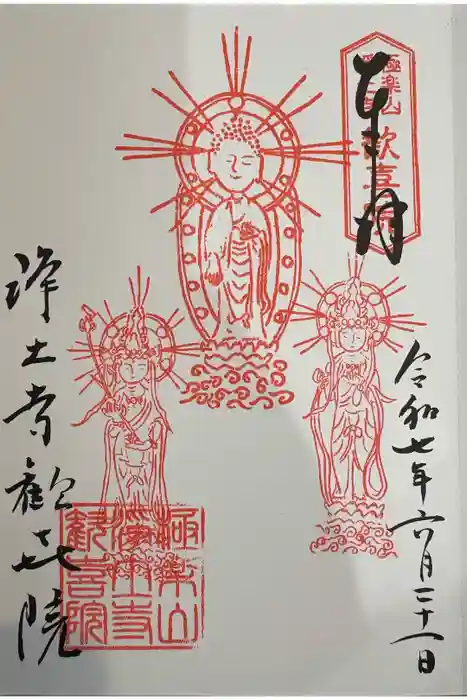 奉拝
極楽山
浄土寺
歓喜院
令和七年六月二十一日
浄土寺歓喜院
極楽山
浄土寺
歓喜院